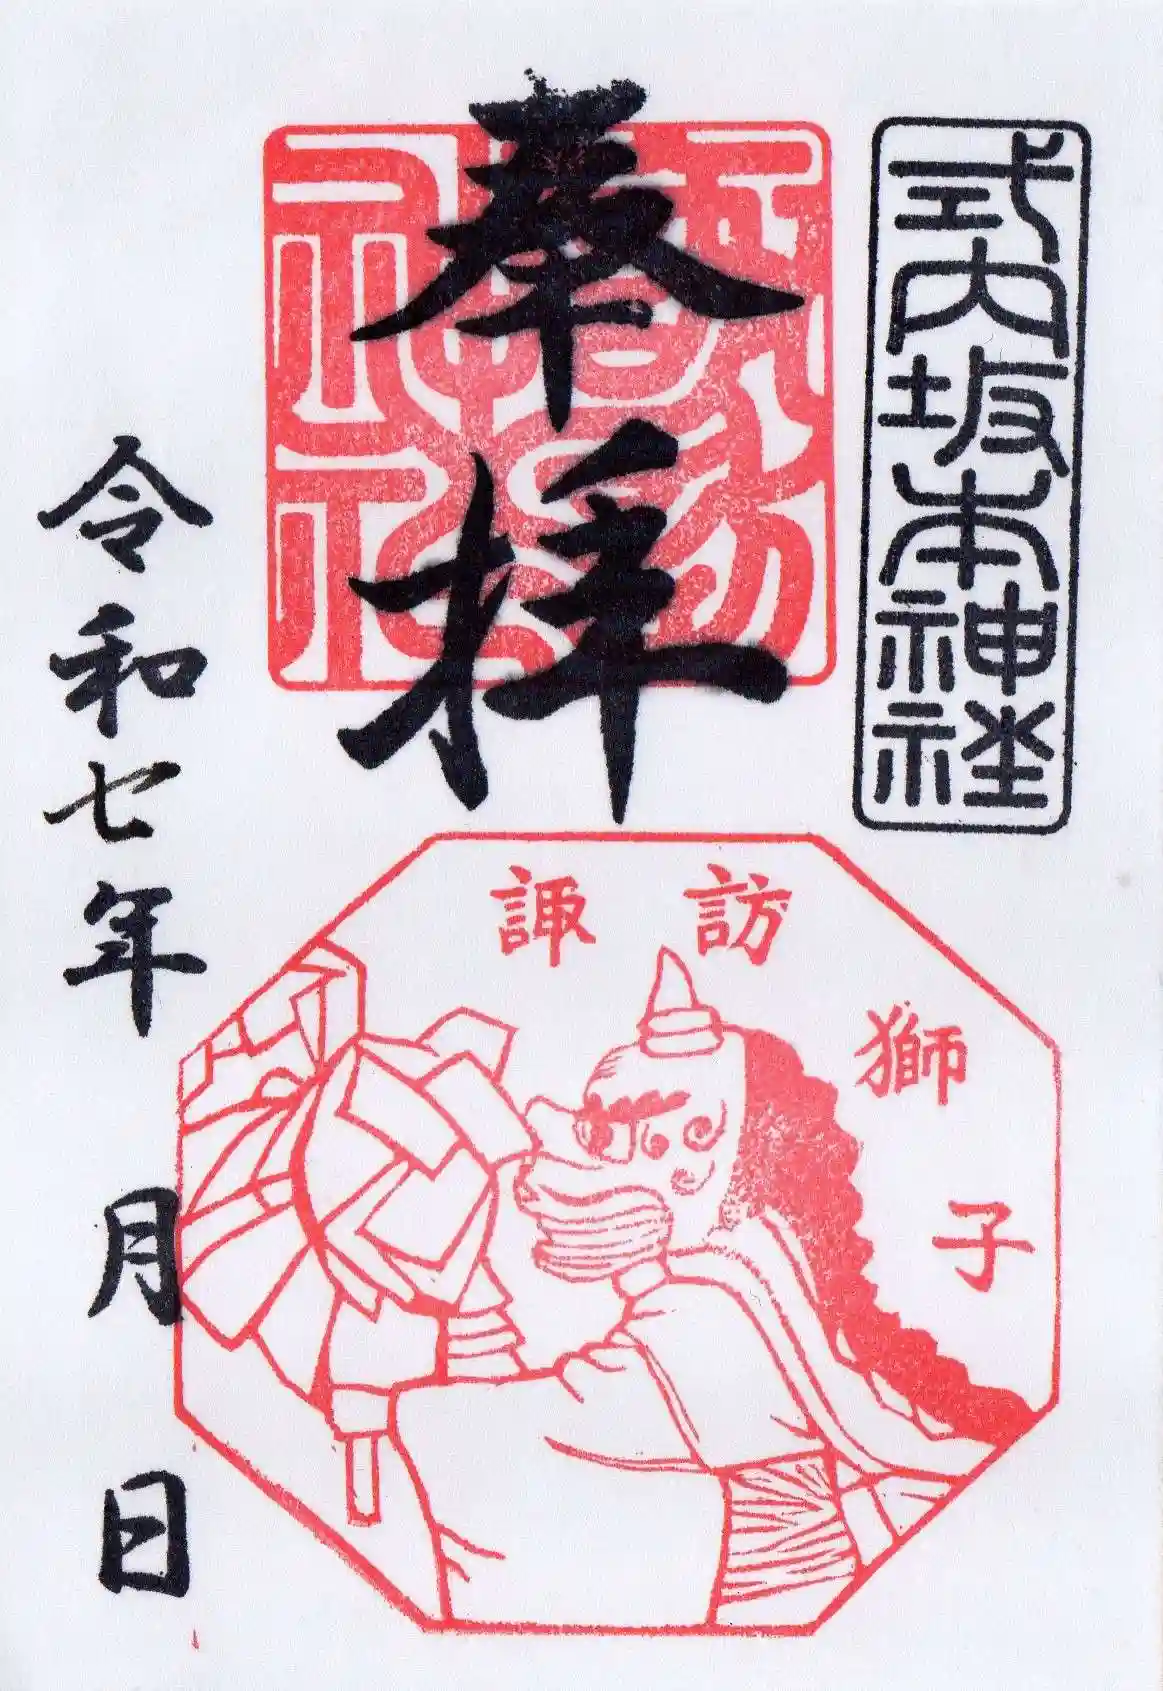 式内坂本神社
奉拝
諏訪獅子
令和七年 月 日